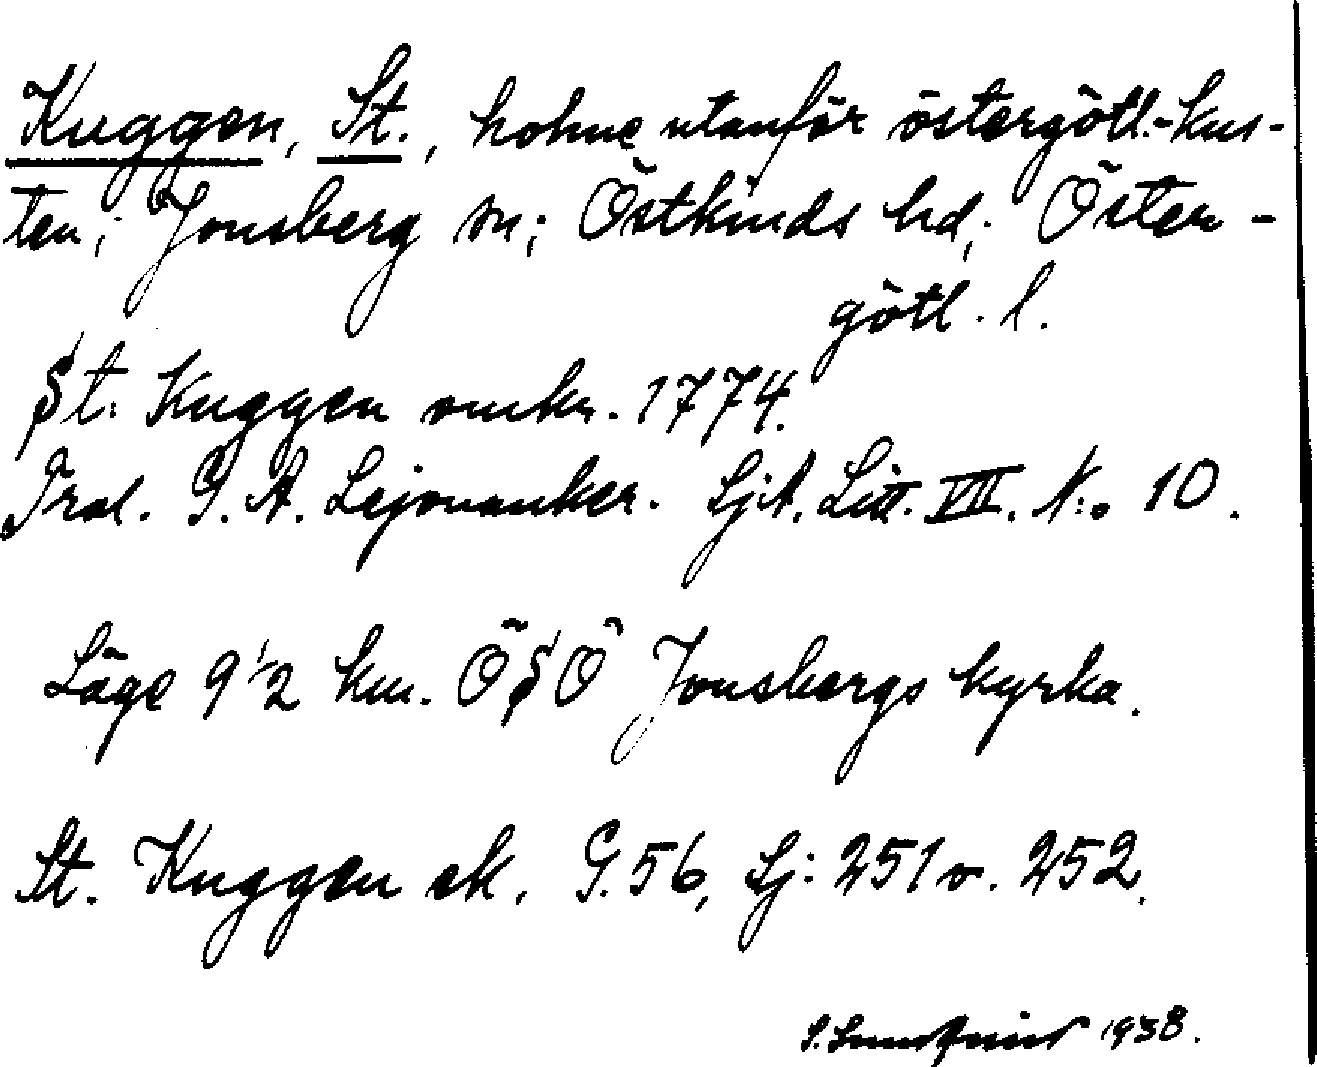 Kuggen, St., holme utanför östergötl.-kus-
ten; Jonsberg sn; Östkinds hd; Öster-
götl. l.
St. Kuggen omkr. 1774.
Trol. G. A. Lejonanker. SjA. Litt. VII. N:o 10.
Läge 9 1/2 km. ÖSÖ Jonsbergs kyrka.
St. Kuggen ek. G. 56, Sj: 251 o. 252.
1938.